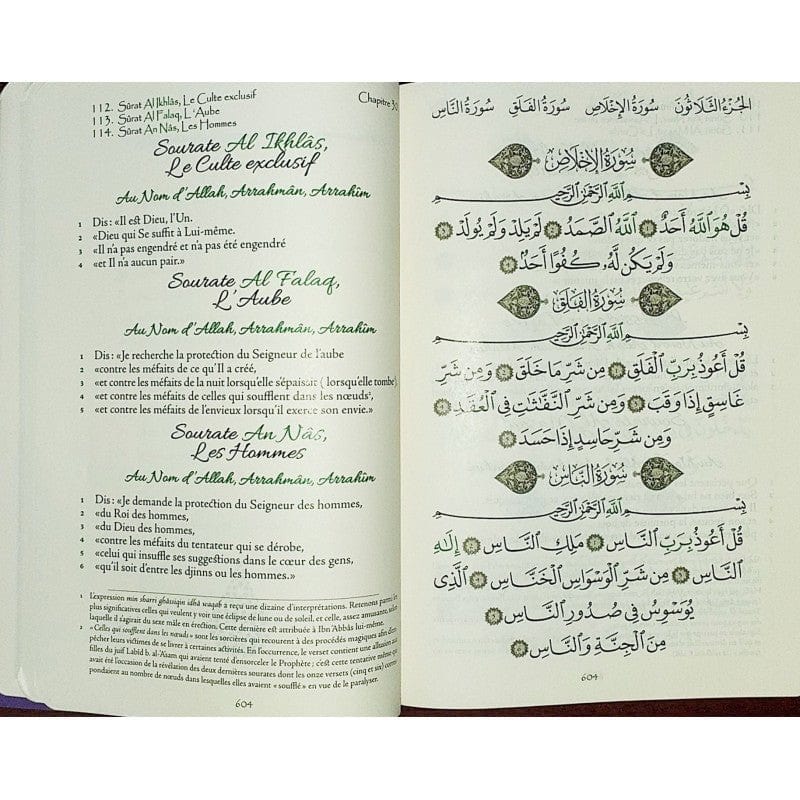 112. Sûrat Al Ikhlâs, Le Culte exclusif
113. Sûrat Al Falaq, L'Aube
114. Sûrat An Nâs, Les Hommes
Chapitre 30
Sourate Al Ikhlâs,
Le Culte exclusif
Au Nom d'Allah, Arrahmân, Arrahîm
1 Dis : «Il est Dieu, l'Un.
2 «Dieu qui Se suffit à Lui-même.
3 «Il n'a pas engendré et n'a pas été engendré
4 «et Il n'a aucun pair.»
Sourate Al Falaq,
L'Aube
Au Nom d'Allah, Arrahmân, Arrahîm
1 Dis : «Je recherche la protection du Seigneur de l'aube
2 «contre les méfaits de ce qu'Il a créé,
3 «et contre les méfaits de la nuit lorsqu'elle s'épaissit ( lorsqu'elle tombe)
4 «et contre les méfaits de celles qui soufflent dans les nœuds²,
5 «et contre les méfaits de l'envieux lorsqu'il exerce son envie.»
Sourate An Nâs,
Les Hommes
Au Nom d'Allah, Arrahmân, Arrahîm
1 Dis : «Je demande la protection du Seigneur des hommes,
2 «du Roi des hommes,
3 «du Dieu des hommes,
4 «contre les méfaits du tentateur qui se dérobe,
5 «celui qui insuffle ses suggestions dans le cœur des gens,
6 «qu'il soit d'entre les djinns ou les hommes.»
1 L'expression min sharri ghâssiqin idhâ waqab a reçu une dizaine d'interprétations. Retenons parmi les
plus significatives celles qui veulent y voir une éclipse de lune ou de soleil, et celle, assez amusante, selon
laquelle il s'agirait du sexe mâle en érection. Cette dernière est attribuée à Ibn 'Abbâs lui-même.
2 « Celles qui soufflent dans les nœuds » sont les sorcières qui recourent à des procédés magiques afin d'em-
pêcher leurs victimes de se livrer à certaines activités. En l'occurrence, le verset contient une allusion aux
filles du juif Labîd b. al-'Asam qui avaient tenté d'ensorceler le Prophète ; c'est cette tentative même qui
avait été l'occasion de la révélation des deux dernières sourates dont les onze versets (cinq et six) corres-
pondaient au nombre de nœuds dans lesquelles elles avaient « soufflé » en vue de le paralyser.
604
الجُزْءُ الثَّلَاثُونَ سُورَةُ الإِخْلَاصِ سُورَةُ الفَلَقِ سُورَةُ النَّاسِ
سُورَةُ الإِخْلَاصِ
بِسْمِ ٱللَّهِ ٱلرَّحْمَٰنِ ٱلرَّحِيمِ
قُلْ هُوَ ٱللَّهُ أَحَدٌ ١ ٱللَّهُ ٱلصَّمَدُ ٢ لَمْ يَلِدْ وَلَمْ يُولَدْ ٣
وَلَمْ يَكُن لَّهُۥ كُفُوًا أَحَدٌ ٤
سُورَةُ الفَلَقِ
بِسْمِ ٱللَّهِ ٱلرَّحْمَٰنِ ٱلرَّحِيمِ
قُلْ أَعُوذُ بِرَبِّ ٱلْفَلَقِ ١ مِن شَرِّ مَا خَلَقَ ٢ وَمِن شَرِّ
غَاسِقٍ إِذَا وَقَبَ ٣ وَمِن شَرِّ ٱلنَّفَّٰثَٰتِ فِى ٱلْعُقَدِ ٤
وَمِن شَرِّ حَاسِدٍ إِذَا حَسَدَ ٥
سُورَةُ النَّاسِ
بِسْمِ ٱللَّهِ ٱلرَّحْمَٰنِ ٱلرَّحِيمِ
قُلْ أَعُوذُ بِرَبِّ ٱلنَّاسِ ١ مَلِكِ ٱلنَّاسِ ٢ إِلَٰهِ
ٱلنَّاسِ ٣ مِن شَرِّ ٱلْوَسْوَاسِ ٱلْخَنَّاسِ ٤ ٱلَّذِى
يُوَسْوِسُ فِى صُدُورِ ٱلنَّاسِ ٥
مِنَ ٱلْجِنَّةِ وَٱلنَّاسِ ٦
604